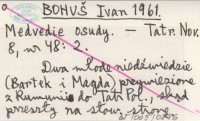 BOHUŠ Ivan 1961.
Medvedie osudy. – Tatr. Nov.
8, nr 48: 2.
Dwa młode niedźwiedzie
(Bartek i Magda) przywiezione
z Rumunii do Tatr Pol., skąd
przeszły na słow. stronę